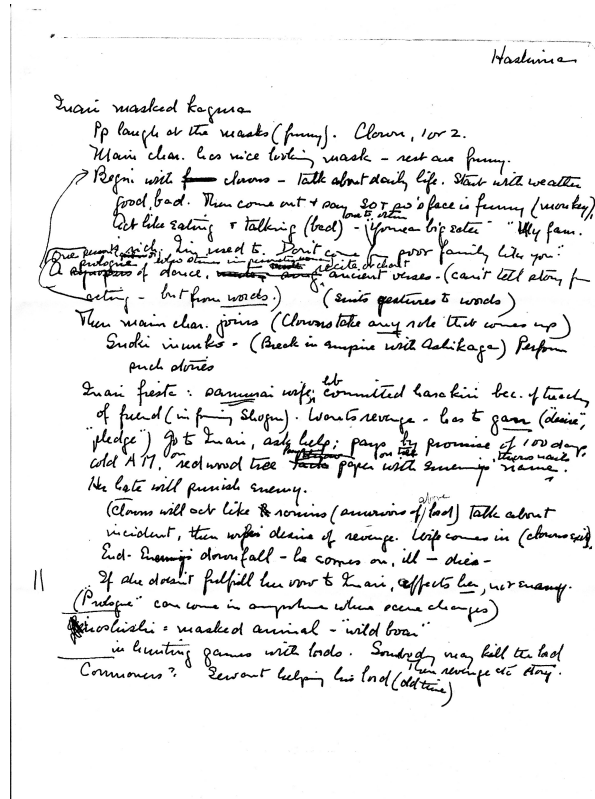 Hashima
Inari masked kagura
Pp laugh at the masks (funny). Clown, 1 or 2.
Main char. has nice looking mask - rest are funny.
Begin with clowns - talk about daily life. Start with weather
good, bad. Then come out & say so & so's face is funny (monkey),
Act like eating & talking (bad) - one to other "You're a big eater" "My fam.
one punk, rich. I'm used to. Don't come poor family like you"
prologue who's in
A synopsis of dance, recite, or chant ancient verses - (can't tell story fr
acting - but from words.) (suits gestures to words)
Then main char. joins (Clowns take any role that comes up)
- (Break in empire with Ashikaga) Perform
such stories
Inari fiesta: samurai wife, committed harakiri bec. of
of friend (in Shogun). Wants revenge - has to gan (desire,
"pledge") Go to Inari, ask help; pays by promise of 100 days
cold A.M., on redwood tree paper with enemy's name.
Her hate will punish enemy.
(Clowns will act like ronins (survivors of above lord) Talk about
incident, then wife's desire of revenge. Wife comes in (clowns exit).
End - Enemy's downfall - he comes on, ill - dies -
"If she doesn't fulfill her vow to Inari, affects her, not enemy.
("Prologue" can come in anywhere where scene changes)
Inoshishi = masked animal - "wild boar"
in hunting games with lords. Somebody may kill the lord
Then revenge etc story.
Commoners? Servant helping his lord (old time)